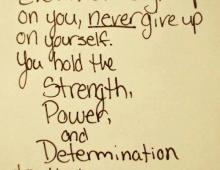 on you, never give up
on yourself.
You hold the
Strength,
Power,
and
Determination